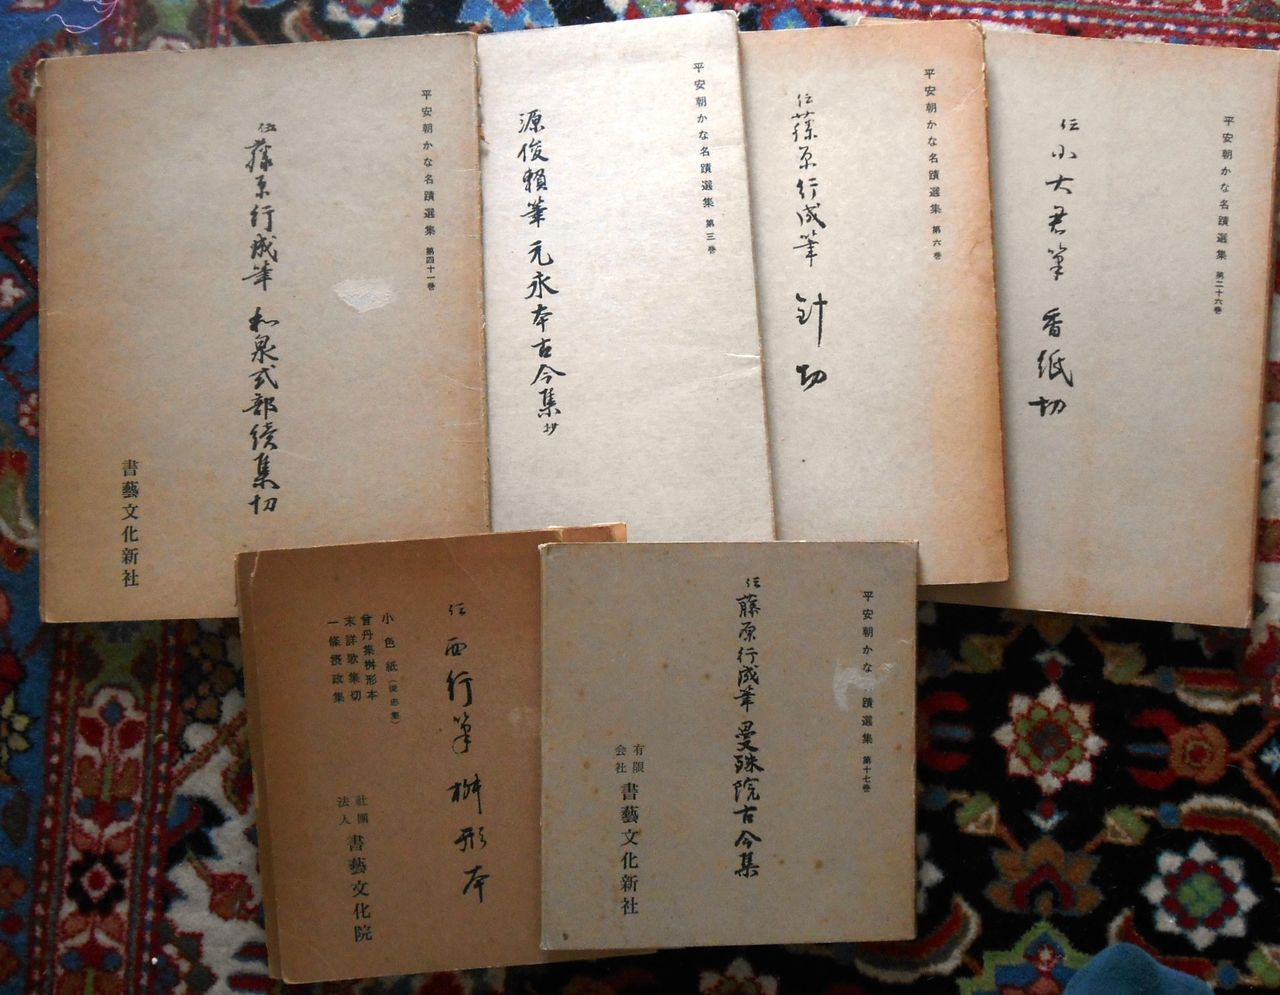 平安朝かな名蹟選集 第四十一巻
伝藤原行成筆 和泉式部續集切
書藝文化新社
平安朝かな名蹟選集 第三巻
源俊頼筆 元永本古今集抄
平安朝かな名蹟選集 第六巻
伝藤原行成筆 針切
平安朝かな名蹟選集 第二十六巻
伝小大君筆 香紙切
伝西行筆 桝形本
小色紙
曾丹集桝形本
末詳歌集切
一條摂政集
社團法人 書藝文化院
平安朝かな 蹟選集 第十七巻
伝藤原行成筆 曼殊院古今集
有限会社 書藝文化新社